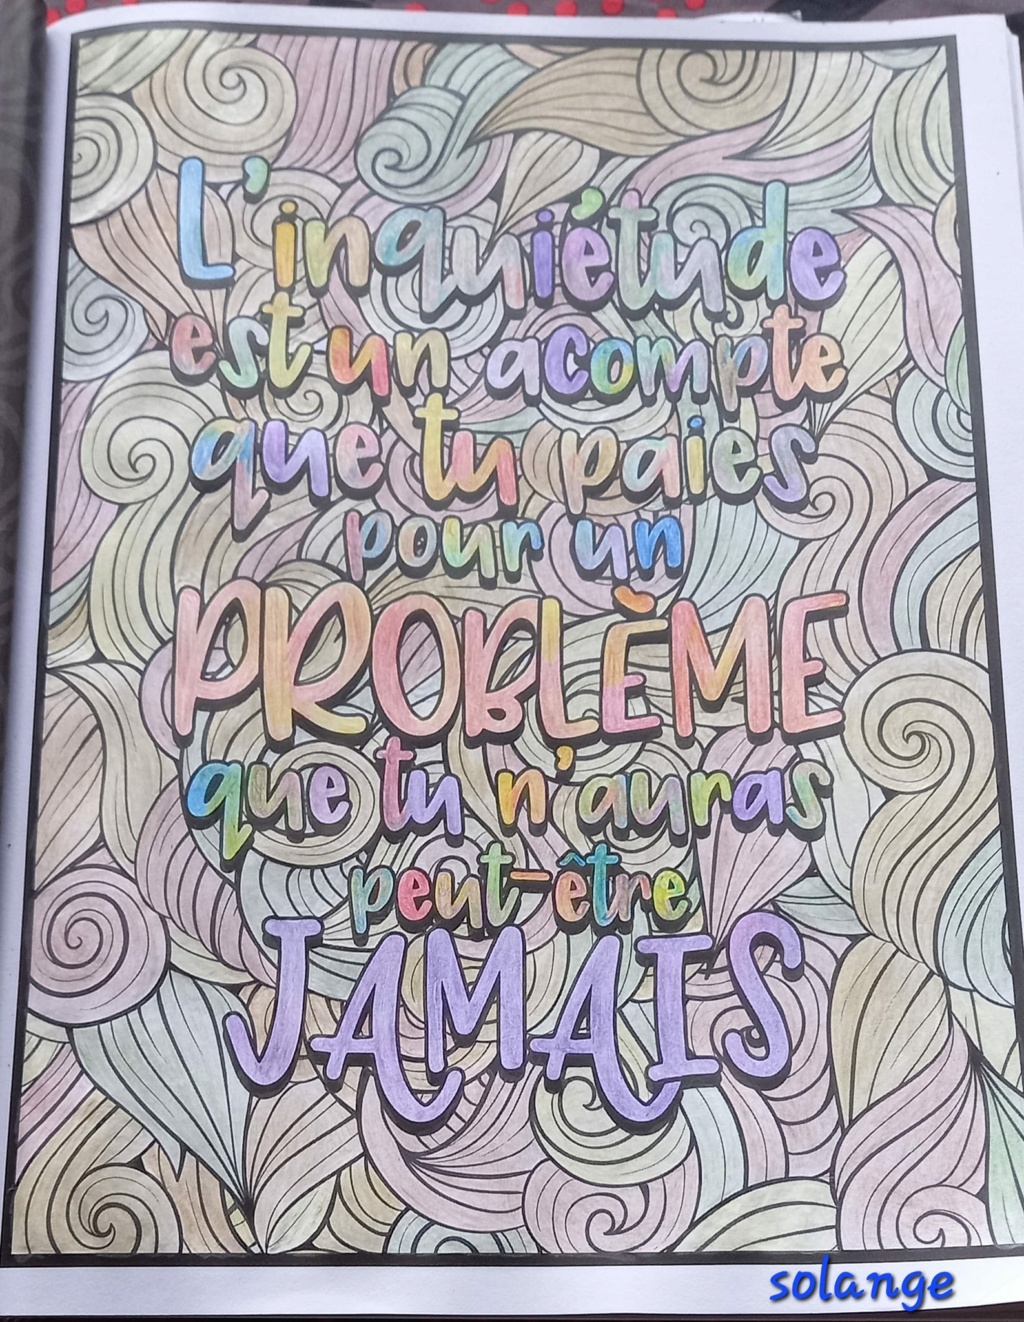 L'inquiétude
est un acompte
que tu paies
pour un
PROBLÈME
que tu n'auras
peut-être
JAMAIS
solange